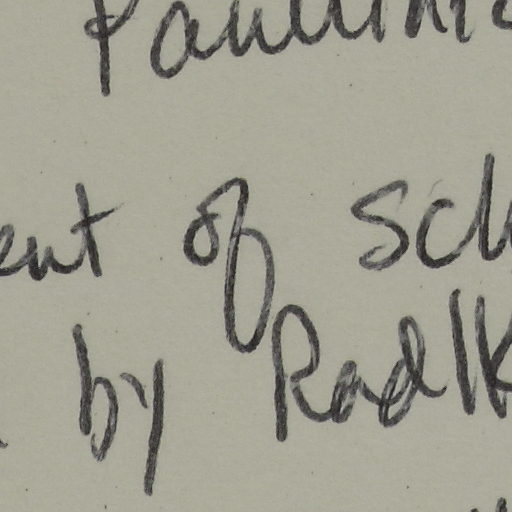 Paullini
ent of Sch
by Radlk